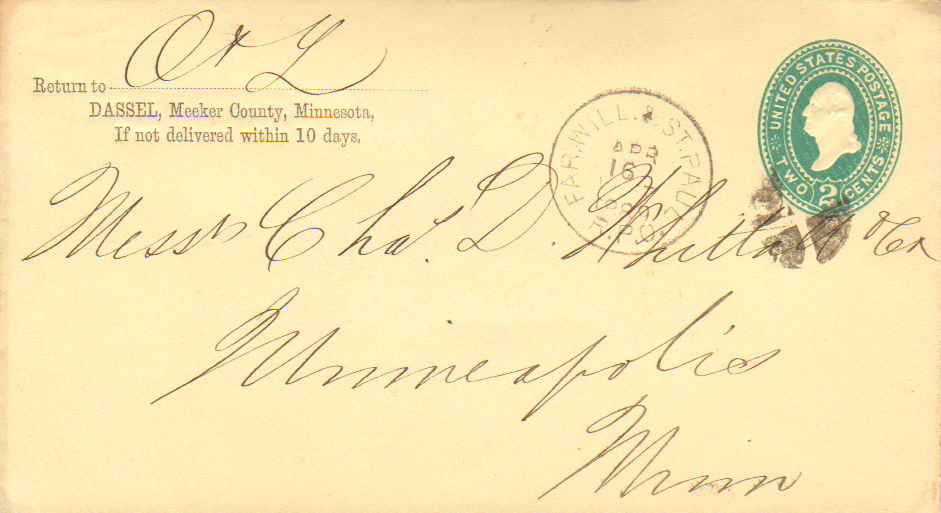 Return to O & L
DASSEL, Meeker County, Minnesota,
If not delivered within 10 days.
UNITED STATES POSTAGE
TWO 2 CENTS
FAR. WILL. & ST. PAUL
APR
16
R.P.O.
Messrs Chas. D. Whittall & Co
Minneapolis
Minn